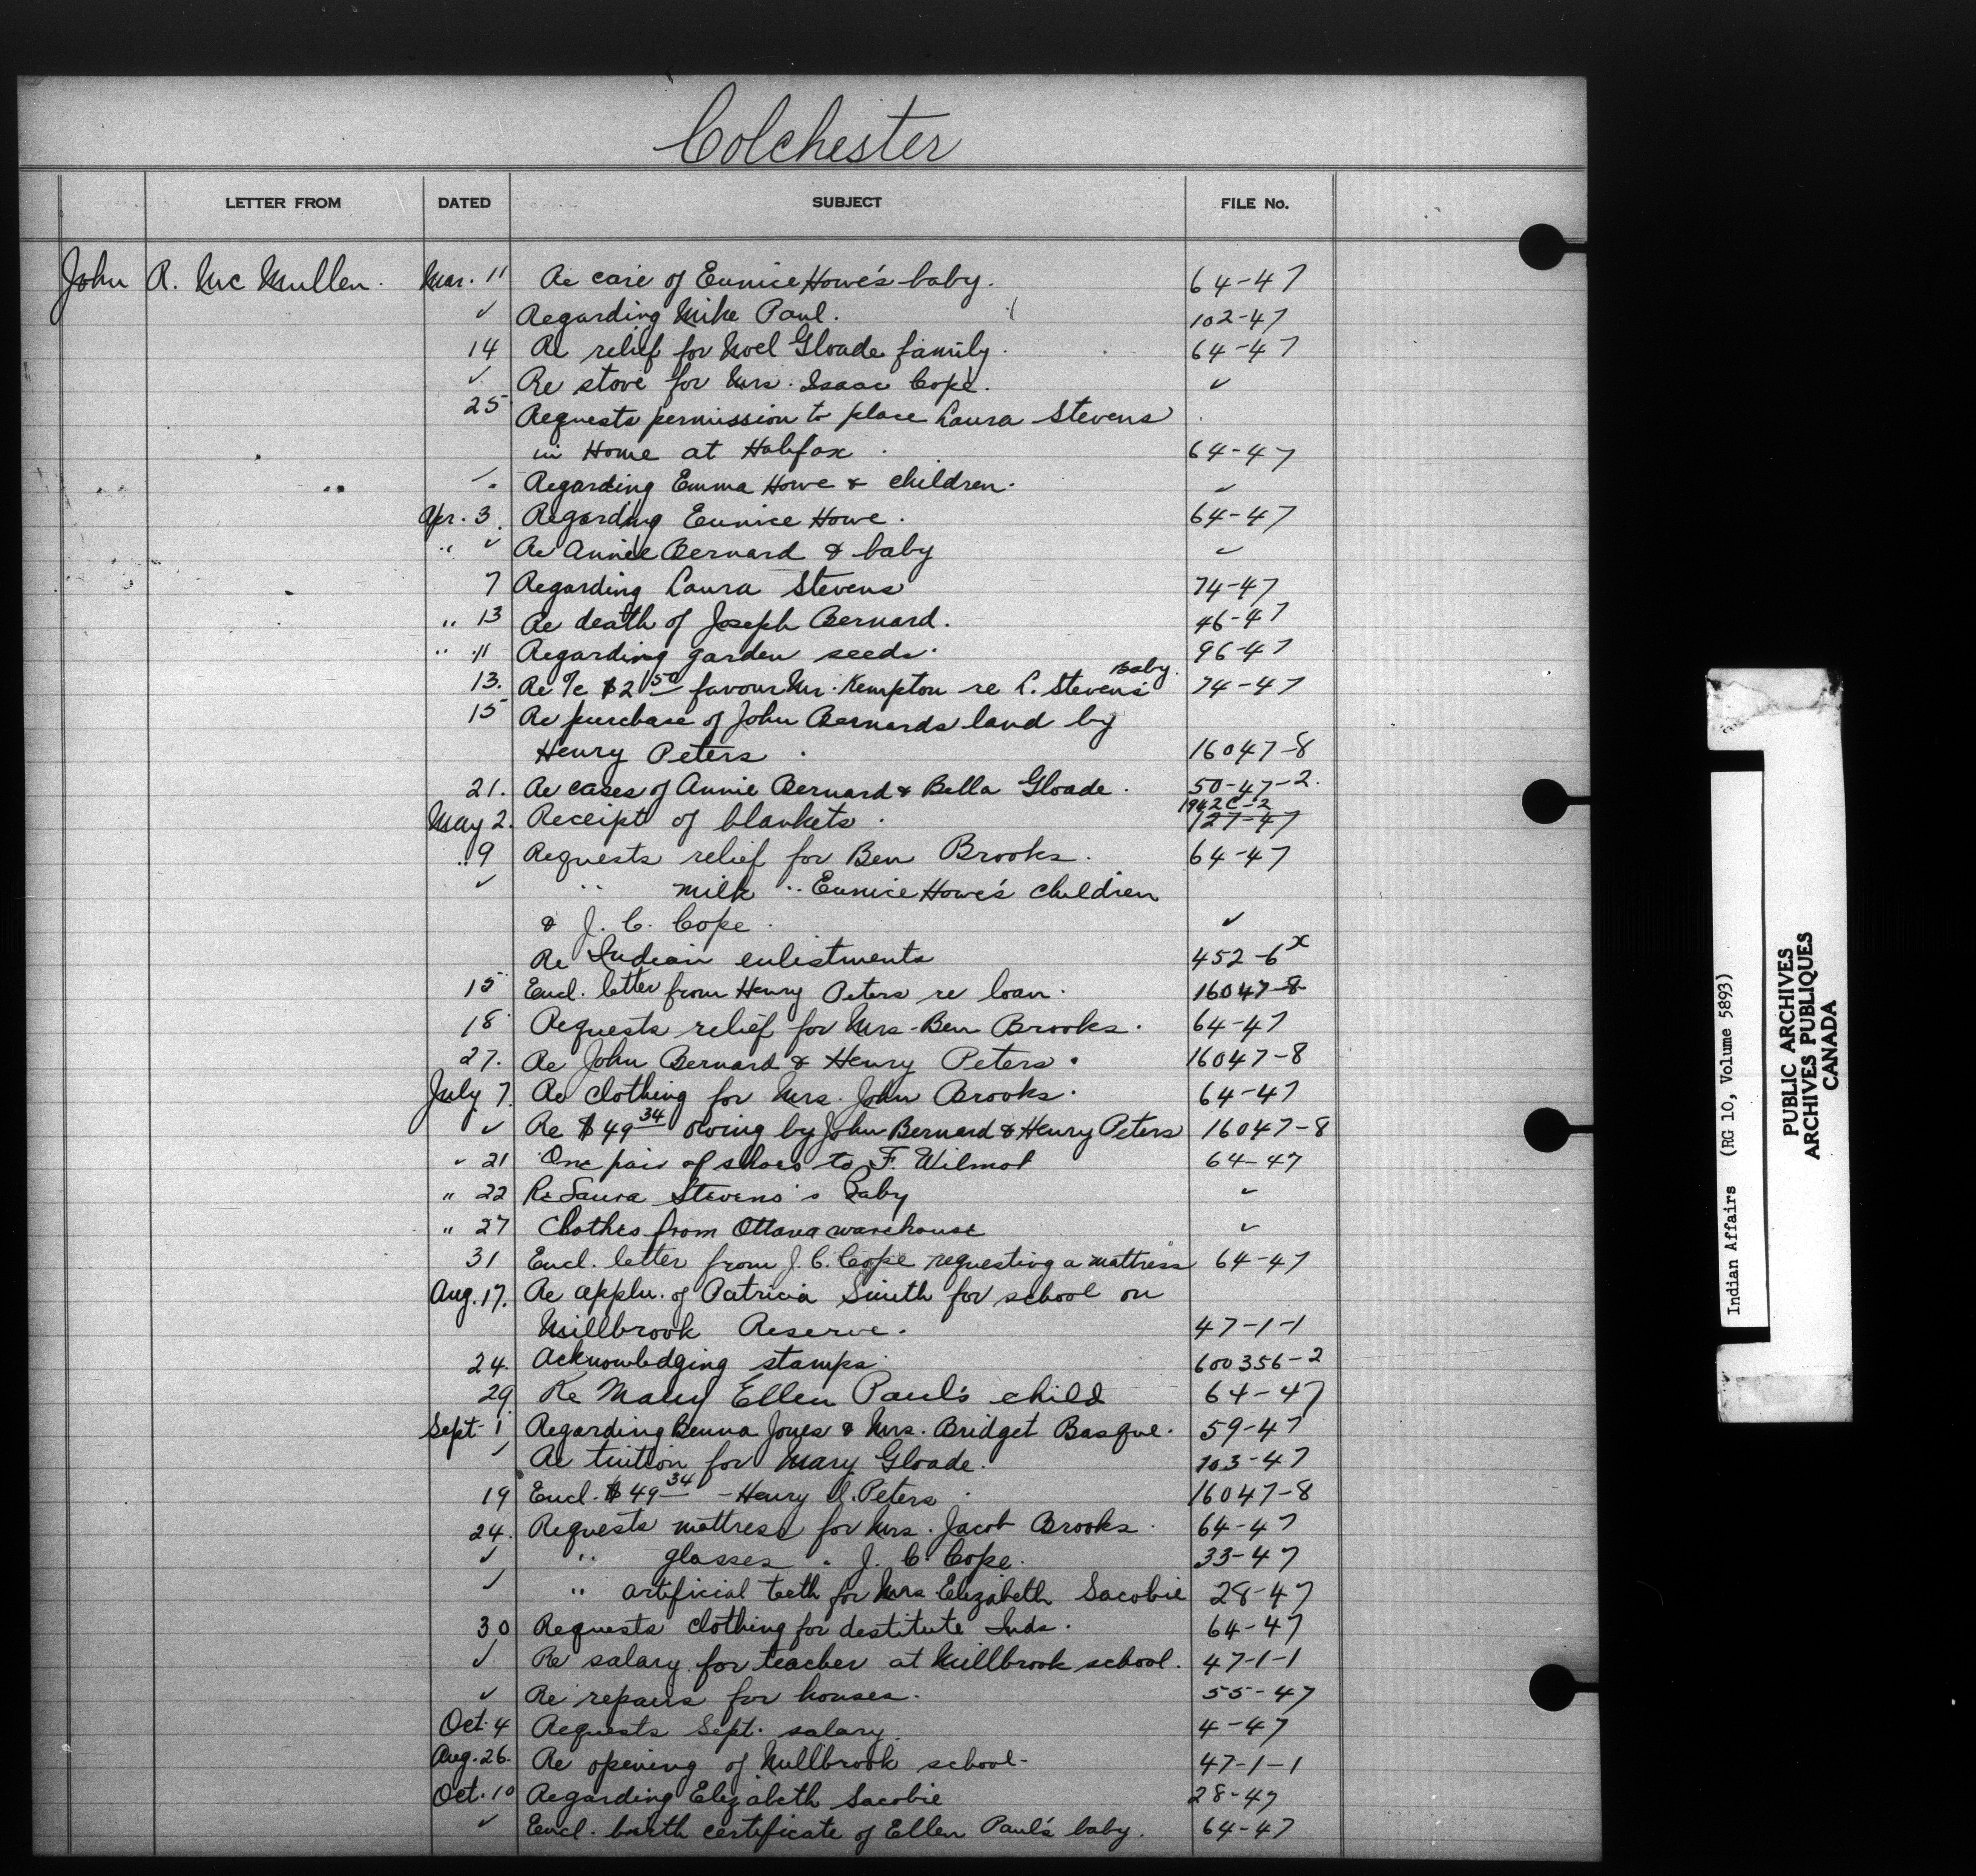 Colchester
LETTER FROM DATED SUBJECT FILE No.
John R. McMullen. Mar. 11 Re care of Eunice Howe's baby. 64-47
✓ Regarding Mike Paul. 102-47
14 Re relief for Noel Gloade family. 64-47
✓ Re stove for Mrs. Isaac Cope. ✓
25 Requests permission to place Laura Stevens
in Home at Halifax. 64-47
✓ Regarding Emma Howe & children. ✓
Apr. 3. Regarding Eunice Howe. 64-47
" ✓ Re Annie Bernard & baby ✓
7 Regarding Laura Stevens 74-47
" 13 Re death of Joseph Bernard. 46-47
" 11 Regarding garden seeds. 96-47
13. Re a/c $2 50 favour Mr. Kempton re L. Stevens' Baby. 74-47
15 Re purchase of John Bernards land by
Henry Peters. 16047-8
21. Re cases of Annie Bernard & Bella Gloade. 50-47-2.
1942C-2
May 2. Receipt of blankets. 127-47
" 9 Requests relief for Ben Brooks. 64-47
✓ " milk " Eunice Howe's children
& J. C. Cope. ✓
Re Indian enlistments 452-6x
15 Encl. letter from Henry Peters re loan. 16047-8
18 Requests relief for Mrs. Ben Brooks. 64-47
27. Re John Bernard & Henry Peters. 16047-8
July 7. Re clothing for Mrs. John Brooks. 64-47
✓ Re $49 34 owing by John Bernard & Henry Peters 16047-8
" 21 One pair of shoes to F. Wilmot 64-47
" 22 Re Laura Stevens's Baby ✓
" 27 Clothes from Ottawa warehouse ✓
31 Encl. letter from J. C. Cope requesting a mattress 64-47
Aug. 17. Re appln. of Patricia Smith for school on
Millbrook Reserve. 47-1-1
24. Acknowledging stamps. 600356-2
29 Re Mary Ellen Paul's child 64-47
Sept. 1 Regarding Jones & Mrs. Bridget Basque. 59-47
✓ Re tuition for Mary Gloade. 103-47
19 Encl. $49 34 - Henry Peters 16047-8
24. Requests mattress for Mrs. Jacob Brooks. 64-47
✓ " glasses " J. C. Cope. 33-47
✓ " artificial teeth for Mrs Elizabeth Sacobie 28-47
30 Requests clothing for destitute Inds. 64-47
✓ Re salary for teacher at Millbrook school. 47-1-1
✓ Re repairs for houses. 55-47
Oct. 4 Requests Sept. salary. 4-47
Aug. 26. Re opening of Millbrook school. 47-1-1
Oct. 10 Regarding Elizabeth Sacobie 28-47
✓ Encl. birth certificate of Ellen Paul's baby. 64-47
Indian Affairs (RG 10, Volume 5893)
PUBLIC ARCHIVES
ARCHIVES PUBLIQUES
CANADA